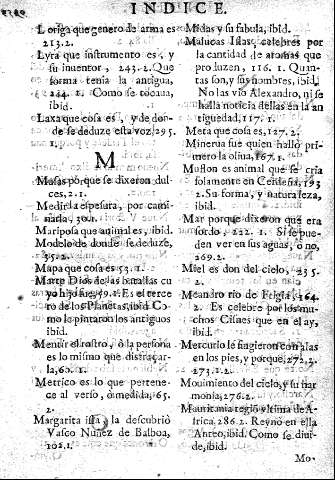 INDICE.
Loriga que genero de arma es
213.2.
Lyra que instrumento es, y
su inuentor, 243.2. Que
forma tenia la antigua,
244.2. Como se tocaua,
ibid.
Laxa que cosa es, y de don-
de se deduze esta voz, 295.
1.
M
Musas porque se dixeron dul-
ces, 2.1.
Medir la espesura, por cami-
narla, 30.1.
Mariposa que animal es, ibid.
Modelo de donde se deduze,
35.2.
Mapa que cosa es 53.1.
Marte Dios de las batallas cu
yo hijo fue, 49.1. Es el terce
ro de los Planetas, ibid. Co
mo lo pintaron los antiguos
ibid.
Mentir el rostro, ò la persona
es lo mismo que disfraçar-
la, 60.1.
Metrico es lo que pertene-
ce al verso, ò medida, 65.
2.
Margarita isla la descubriò
Vasco Nuñez de Balboa,
102.1.
Midas y su fabula, ibid.
Malucas Islas, celebres por
la cantidad de aromas que
produzen, 116.1. Quan-
tas son, y sus nombres, ibid.
No las viò Alexandro, ni se
halla noticia dellas en la an
tiguedad, 117.1.
Meta que cosa es, 127.2.
Minerua fue quien hallò pri-
mero la oliua, 167.1.
Muflon es animal que se cria
solamente en Cerdeña, 193
2. Su forma, y naturaleza,
ibid.
Mar porque dixeron que era
sordo, 222.1. Si se pue-
den ver en sus aguas, ò no,
269.2.
Miel es don del cielo, 235.
2.
Meandro rio de Frigia, 264.
2. Es celebre por los mu-
chos Cisnes que en el ay,
ibid.
Mercurio le fingieron con alas
en los pies, y porque, 272.2.
273.1.2.
Mouimiento del cielo, y su har
monia, 276.2.
Mauritania regiò vltima de A-
frica. 286.2. Reynò en ella
Anteo, ibid. Como se diui-
de, ibid.
Mo-